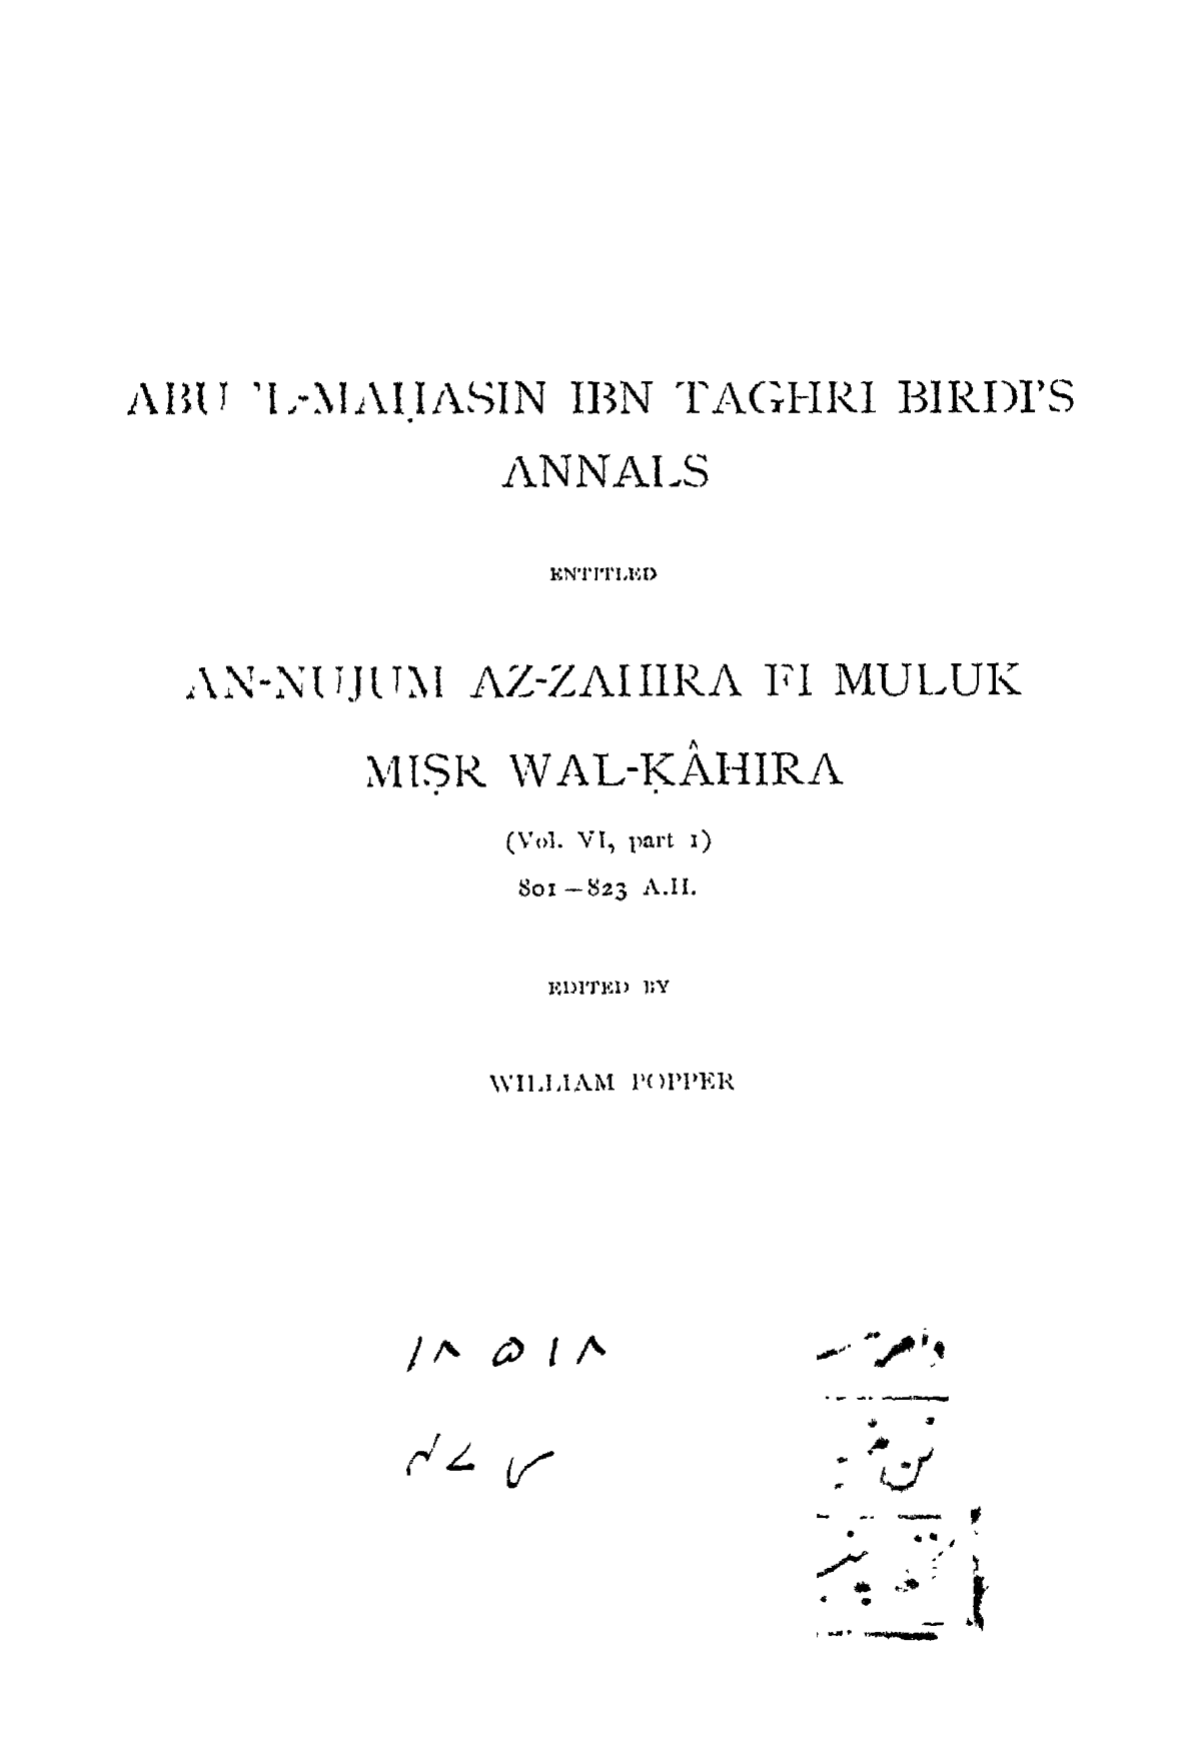 ABU 'L-MAḤASIN IBN TAGHRI BIRDI'S
ANNALS
ENTITLED
AN-NUJUM AZ-ZAHIRA FI MULUK
MIṢR WAL-ḲÂHIRA
(Vol. VI, part 1)
801–823 A.H.
EDITED BY
WILLIAM POPPER
۱۸۵۱۸
فن